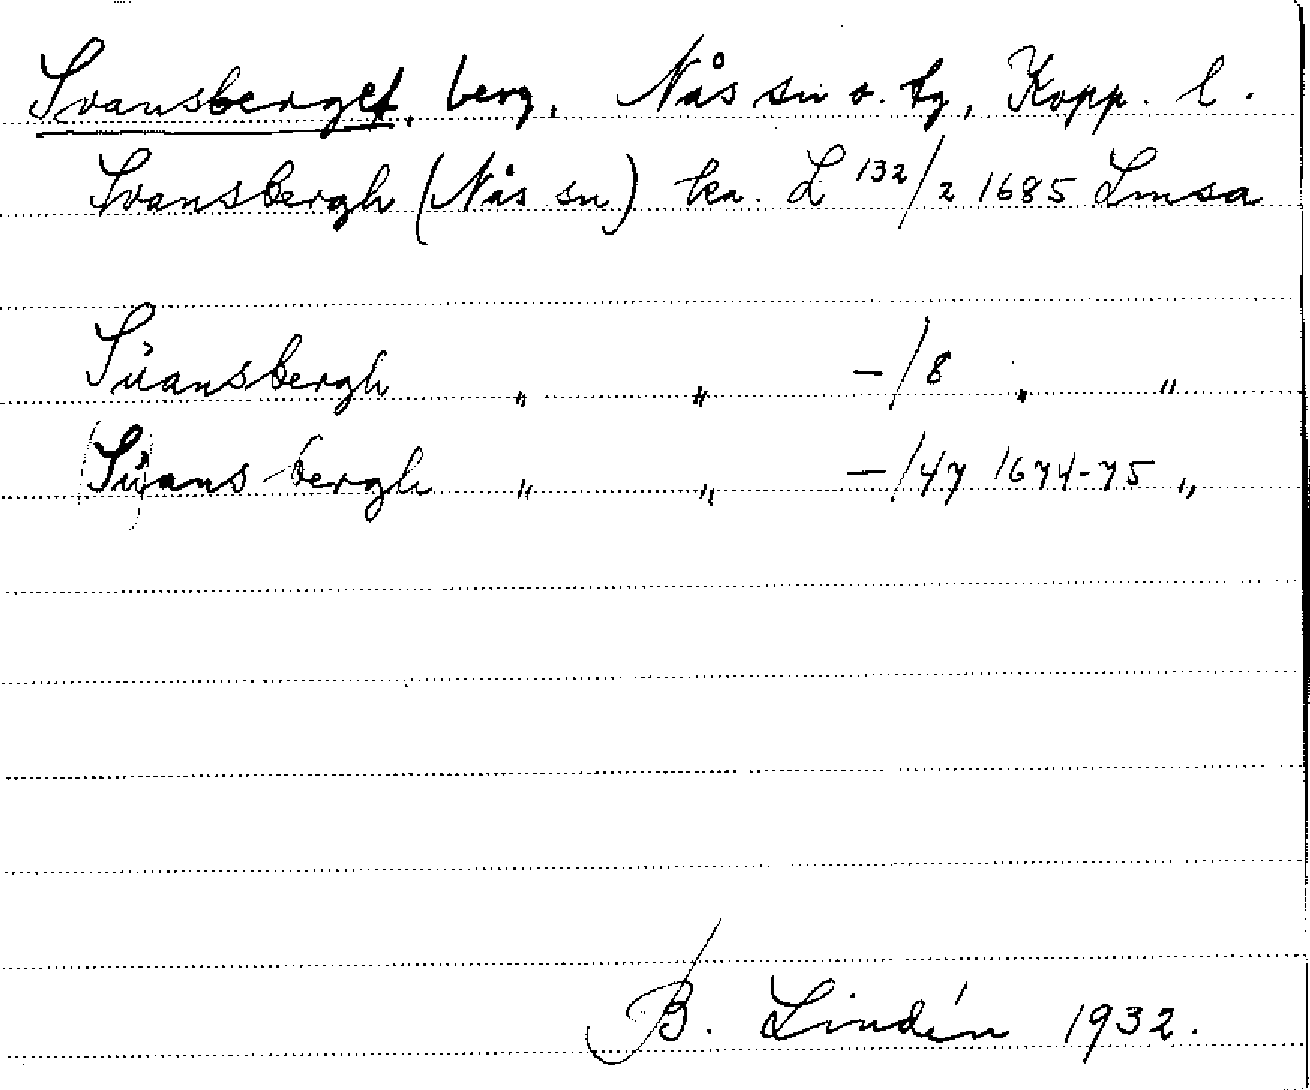 Svansberget, berg, Nås sn o. tg, Kopp. l.
Svansbergh (Nås sn) ka. L 132/2 1685 Lmsa
Sůansbergh " " -/8 " "
(Sů)ans bergh " " -/47 1674-75 "
B. Lindén 1932.